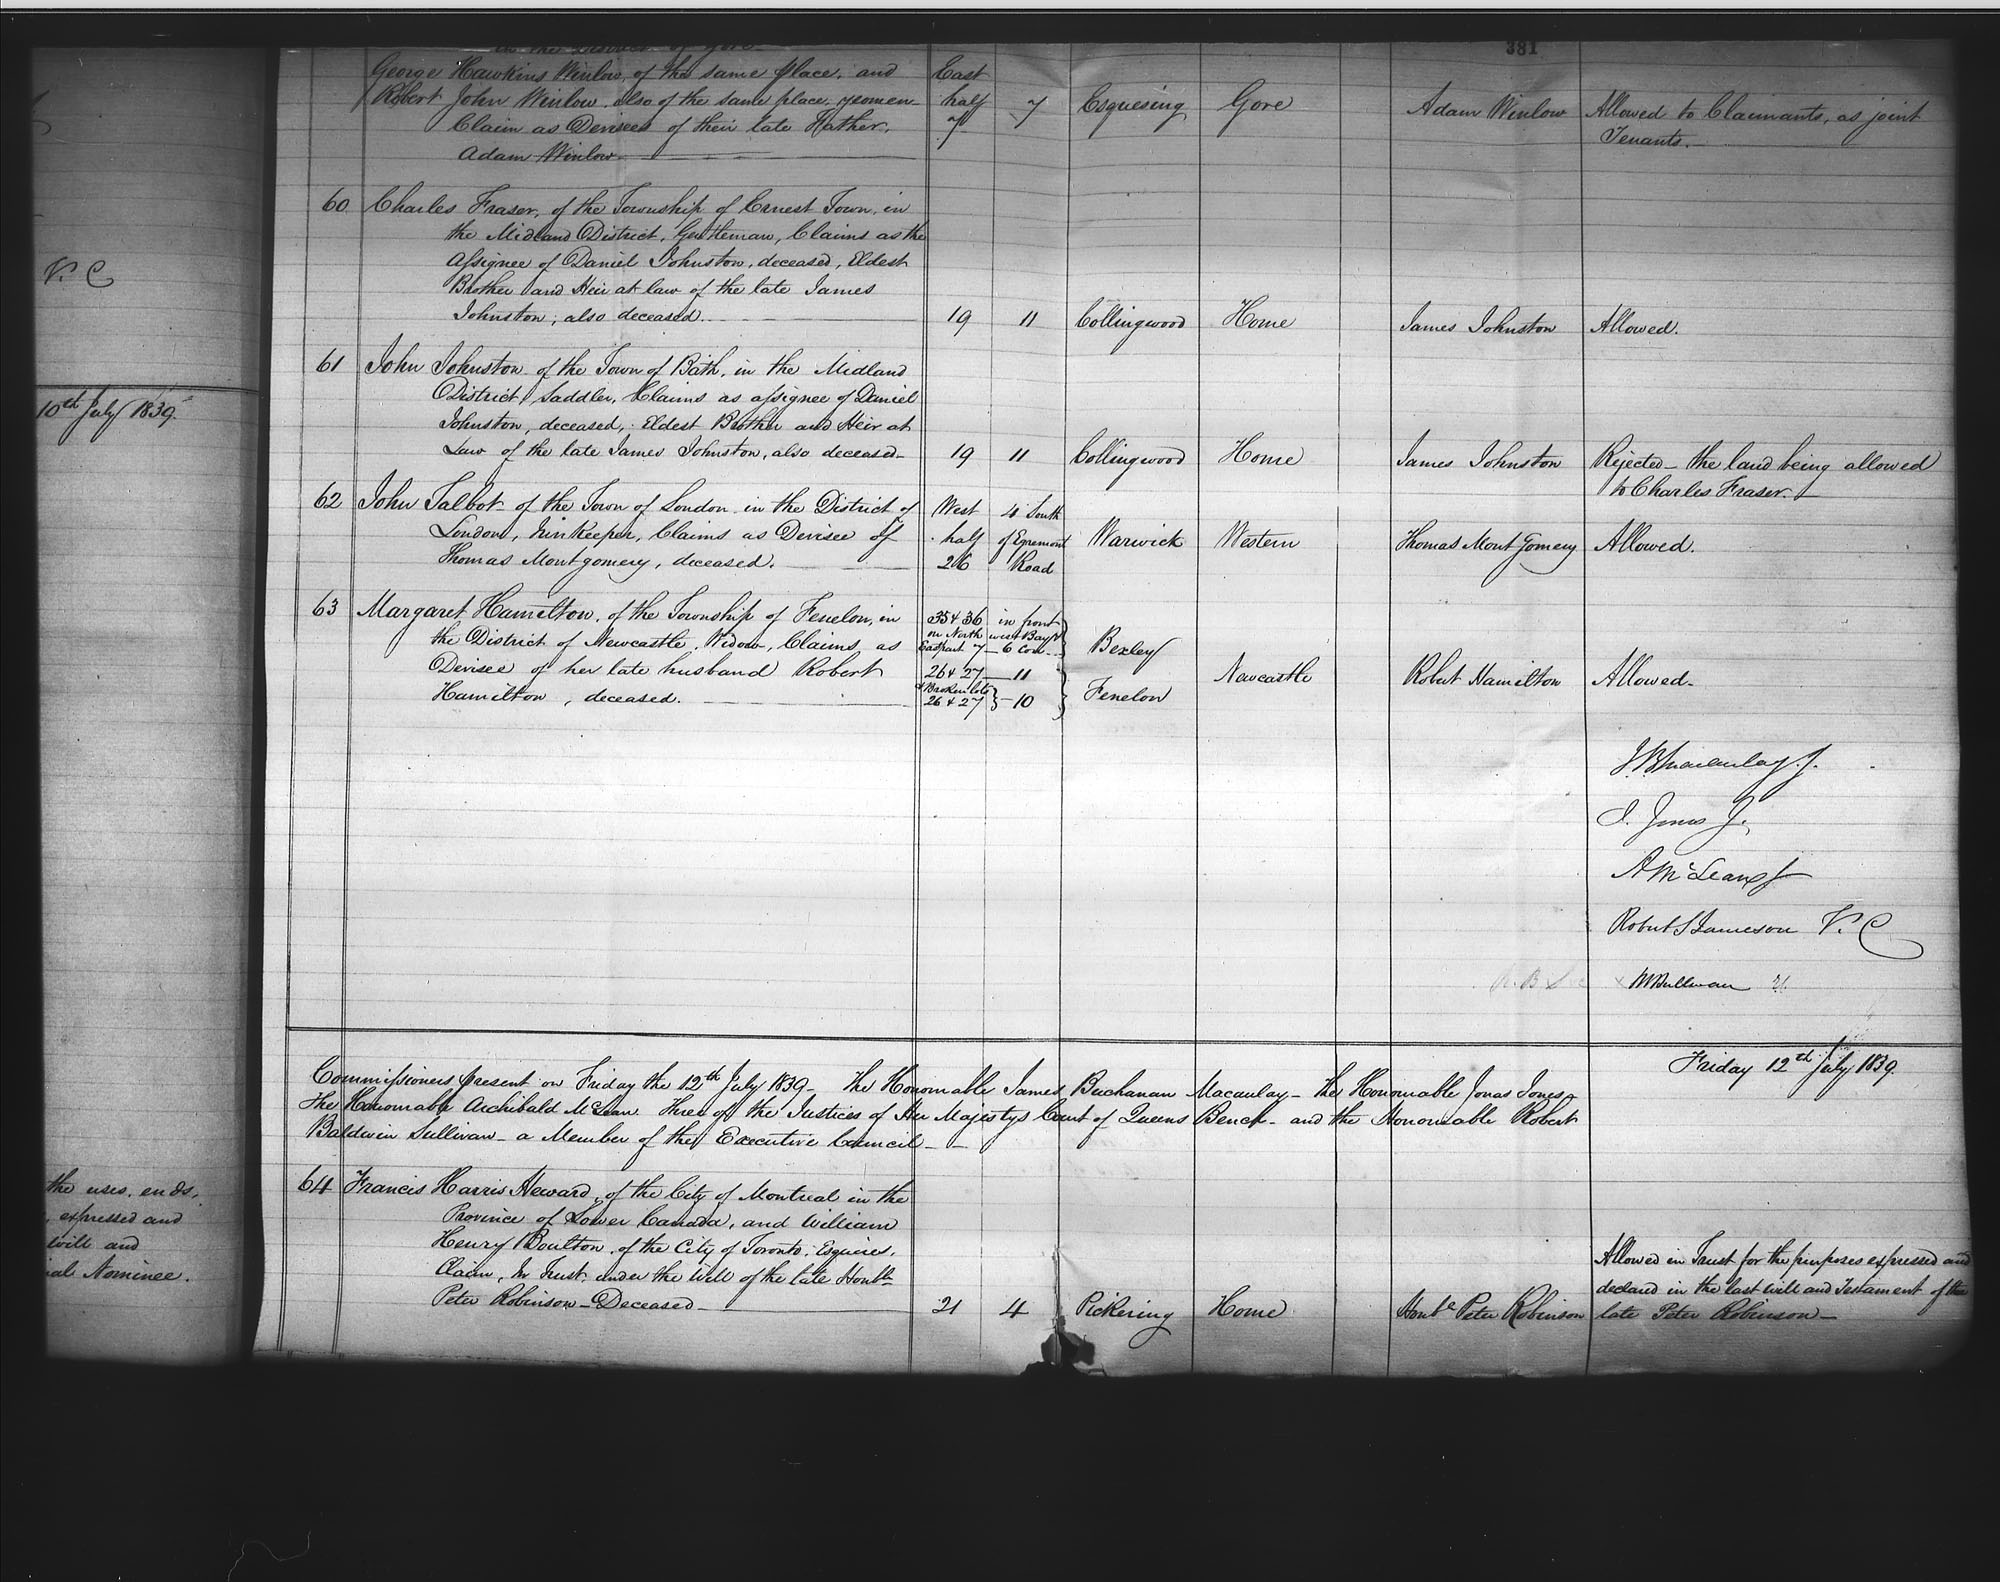 381
in the District of Gore
George Hawkins Winlow, of the same place, and East
Robert John Winlow, also of the same place, yeomen half 7 Esquesing Gore Adam Winlow Allowed to Claimants, as joint
Claim as Devisees of their late Father, 7 Tenants.
Adam Winlow
60 Charles Fraser, of the Township of Ernest Town, in
the Midland District, Gentleman, Claims as the
Assignee of Daniel Johnston, deceased, Eldest
Brother and Heir at law of the late James
Johnston, also deceased. 19 11 Collingwood Home James Johnston Allowed.
61 John Johnston of the Town of Bath, in the Midland
District, Saddler, Claims as assignee of Daniel
Johnston, deceased, Eldest Brother and Heir at
Law of the late James Johnston, also deceased 19 11 Collingwood Home James Johnston Rejected - the land being allowed
to Charles Fraser.
62 John Talbot of the Town of London in the District of West 4 South
London, Innkeeper, Claims as Devisee of half of Egremont Warwick Western Thomas Montgomery Allowed.
Thomas Montgomery, deceased. 26 Road
63 Margaret Hamilton, of the Township of Fenelon, in 35 & 36 in front
the District of Newcastle, Widow, Claims as on North west Bay & Bexley
East part 7 6 Con
Devisee of her late husband Robert 26 & 27 11 Newcastle Robert Hamilton Allowed
Hamilton, deceased. & Broken lots 26 & 27 10 Fenelon
J B Macaulay J.
J. Jones J.
A McLean J
Robert S Jameson V. C
R B Sullivan
Friday 12th July 1839
Commissioners present on Friday the 12th July 1839 - The Honorable James Buchanan Macaulay - the Honourable Jonas Jones
The Honorable Archibald McLean Three of the Justices of Her Majestys Court of Queens Bench - and the Honourable Robert
Baldwin Sullivan - a Member of the Executive Council -
64 Francis Harris Heward, of the City of Montreal in the
Province of Lower Canada, and William
Henry Boulton, of the City of Toronto, Esquires,
Claim, In Trust, under the Will of the late Honble Allowed in Trust for the purposes expressed and
declared in the last will and Testament of the
Peter Robinson - Deceased 21 4 Pickering Home Honble Peter Robinson late Peter Robinson -
V. C
10th July 1839.
the uses, ends,
expressed and
will and
Nominee.